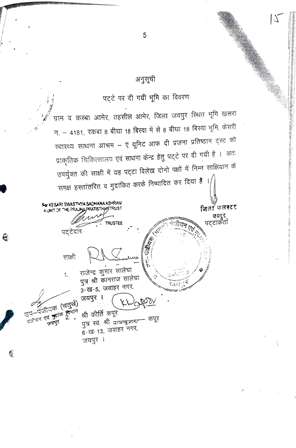 15
5
अनुसूची
पट्टे पर दी गयी भूमि का विवरण
ग्राम व कस्बा आमेर, तहसील आमेर, जिला जयपुर स्थित भूमि खसरा
न. – 4181, रकबा 8 बीघा 18 बिस्वा में से 8 बीघा 18 बिस्वा भूमि, केसरी
स्वास्थ्य साधना आश्रम – ए यूनिट आफ दी प्रजना प्रतिष्ठान ट्रस्ट को
प्राकृतिक चिकित्सालय एवं साधना केन्द्र हेतु पट्टे पर दी गयी है । अतः
उपर्युक्त की साक्षी में यह पट्टा विलेख दोनो पक्षों में निम्न साक्षियान के
समक्ष हस्तांतरित व मुद्रांकित करके निष्पादित कर दिया है ।
For KESARI SWASTHYA SADHANA ASHRAM
A UNIT OF THE PRAJNA PRATISTHAN TRUST
TRUSTEE
पट्टेदार
जिला कलक्टर
जयपुर
पट्टाकर्ता
साक्षी
1. राजेन्द्र कुमार सालेचा
पुत्र श्री
जवाहर नगर,
जयपुर ।
उप-पंजीयक
जयपुर
श्री कीर्ति कपूर
पुत्र स्व. श्री कपूर
13, जवाहर नगर,
जयपुर ।